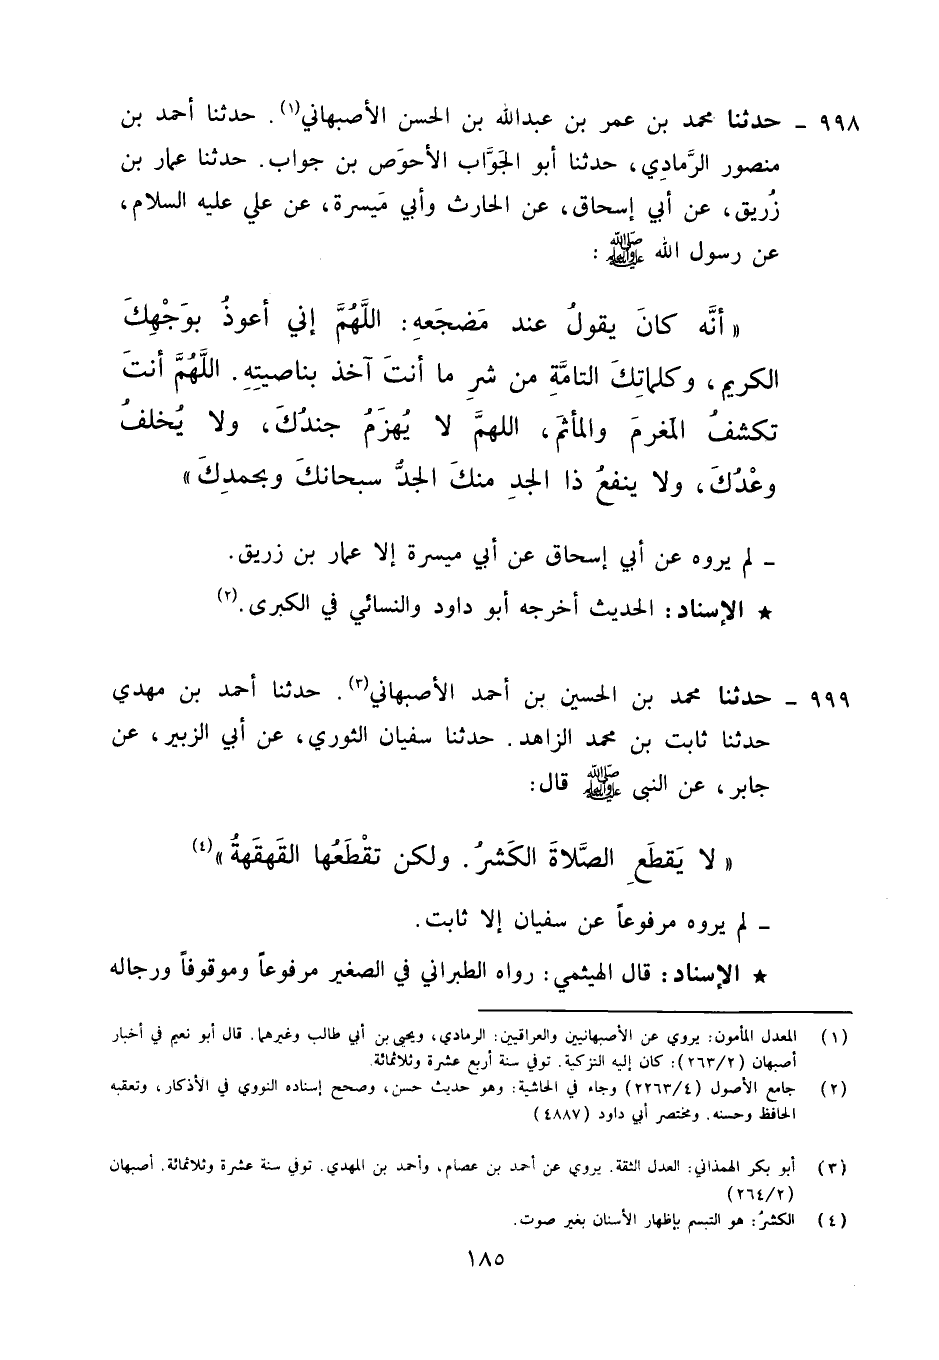 ٩٩٨ ـ حدثنا محمد بن عمر بن عبدالله بن الحسن الأصبهاني(١). حدثنا أحمد بن
منصور الرَّمادي، حدثنا أبو الجَوَّاب الأحوَص بن جواب. حدثنا عمار بن
زُريق، عن أبي إسحاق، عن الحارث وأبي مَيسرة، عن علي عليه السلام،
عن رسول الله ﷺ:
« أنَّه كانَ يقولُ عند مَضجَعهِ: اللَّهُمَّ إني أعوذُ بوَجْهِكَ
الكريم، وكلماتِكَ التامَّةِ من شرِ ما أنتَ آخذ بناصيتِهِ. اللَّهُمَّ أنتَ
تكشفُ المغرمَ والمأثمَ، اللهمَّ لا يُهزَمُ جندُكَ، ولا يُخلفُ
وعْدُكَ، ولا ينفعُ ذا الجدِ منكَ الجدُّ سبحانكَ وبحمدِكَ»
ـ لم يروه عن أبي إسحاق عن أبي ميسرة إلا عمار بن زريق.
★ الإسناد: الحديث أخرجه أبو داود والنسائي في الكبرى.(٢)
٩٩٩ ـ حدثنا محمد بن الحسين بن أحمد الأصبهاني(٣). حدثنا أحمد بن مهدي
حدثنا ثابت بن محمد الزاهد. حدثنا سفيان الثوري، عن أبي الزبير، عن
جابر، عن النبى ﷺ قال:
« لا يَقطَعِ الصَّلاةَ الكَشرُ. ولكن تقْطَعُها القَهقَهةُ»(٤)
ـ لم يروه مرفوعاً عن سفيان إلا ثابت.
★ الإسناد: قال الهيثمي: رواه الطبراني في الصغير مرفوعاً وموقوفاً ورجاله
(١) المعدل المأمون: يروي عن الأصبهانيين والعراقيين: الرمادي، ويحيى بن أبي طالب وغيرهما. قال أبو نعيم في أخبار
أصبهان (٢٦٣/٢): كان إليه التزكية. توفي سنة أربع عشرة وثلاثمائة.
(٢) جامع الأصول (٢٢٦٣/٤) وجاء في الحاشية: وهو حديث حسن، وصحح إسناده النووي في الأذكار، وتعقبه
الحافظ وحسنه. ومختصر أبي داود (٤٨٨٧)
(٣) أبو بكر الهمذاني: العدل الثقة. يروي عن أحمد بن عصام، وأحمد بن المهدي. توفي سنة عشرة وثلاثمائة. أصبهان
(٢٦٤/٢)
(٤) الكشرُ: هو التبسم بإظهار الأسنان بغير صوت.
١٨٥